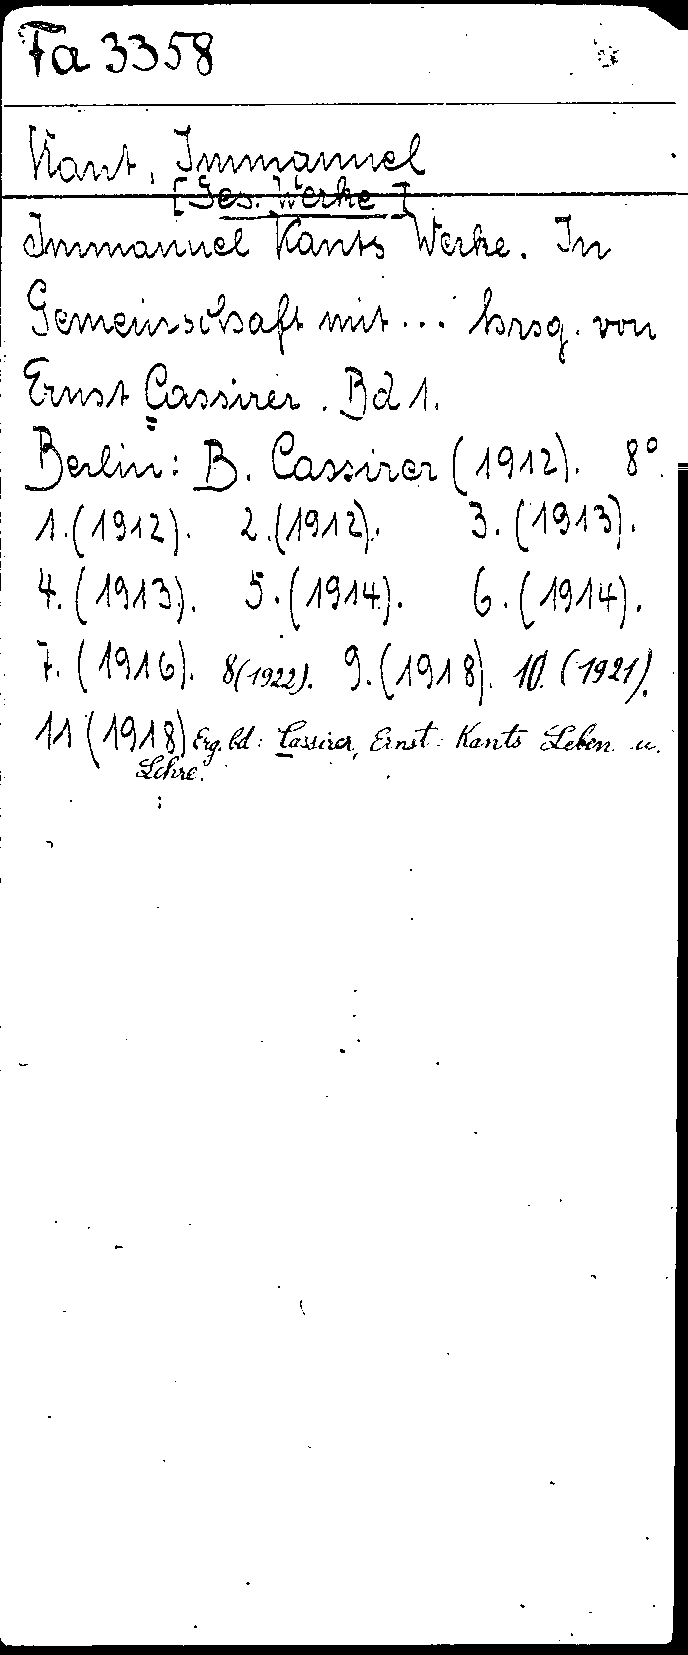 Fa 3358
Kant, Immanuel
[Ges. Werke]
Immanuel Kants Werke. In
Gemeinschaft mit... hrsg. von
Ernst Cassirer. Bd 1.
Berlin: B. Cassirer (1912). 8°.
1.(1912). 2.(1912). 3.(1913).
4.(1913). 5.(1914). 6.(1914).
7.(1916). 8(1922). 9.(1918). 10.(1921).
11(1918) Erg.bd: Cassirer, Ernst: Kants Leben u.
Lehre.